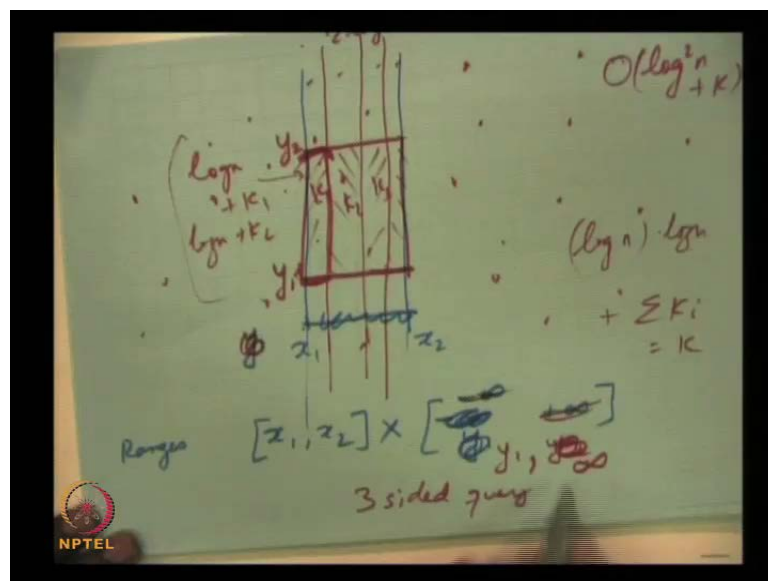 O(log²n
+ K)
y₂
logn
+ K₁
logn + K₂
K₂
K₃
(log n) · logn
y₁
+ ΣKi
= K
x₁
x₂
Ranges [x₁, x₂] × [ y₁, ∞ ]
3 sided query
NPTEL